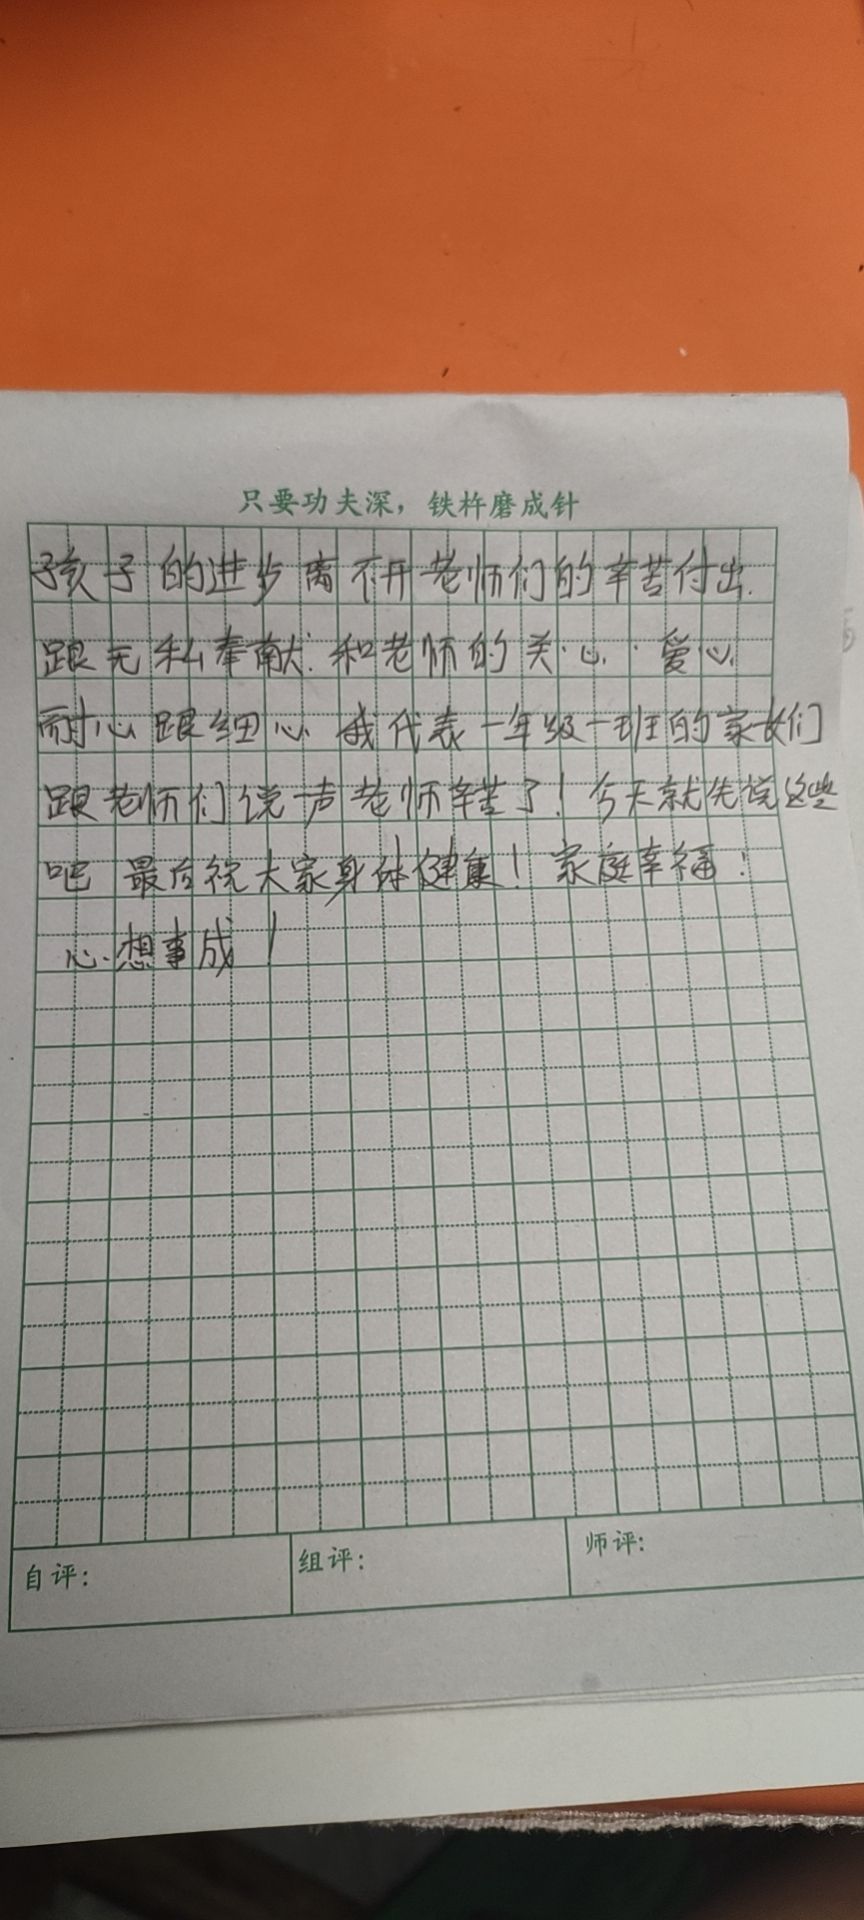 只要功夫深，铁杵磨成针
孩子的进步离不开老师们的辛苦付出.
跟无私奉献.和老师的关心.爱心.
耐心跟细心.我代表一年级一班的家长们
跟老师们说一声老师辛苦了！今天就先说这些
吧 最后祝大家身体健康！家庭幸福！
心想事成！
自评：
组评：
师评：